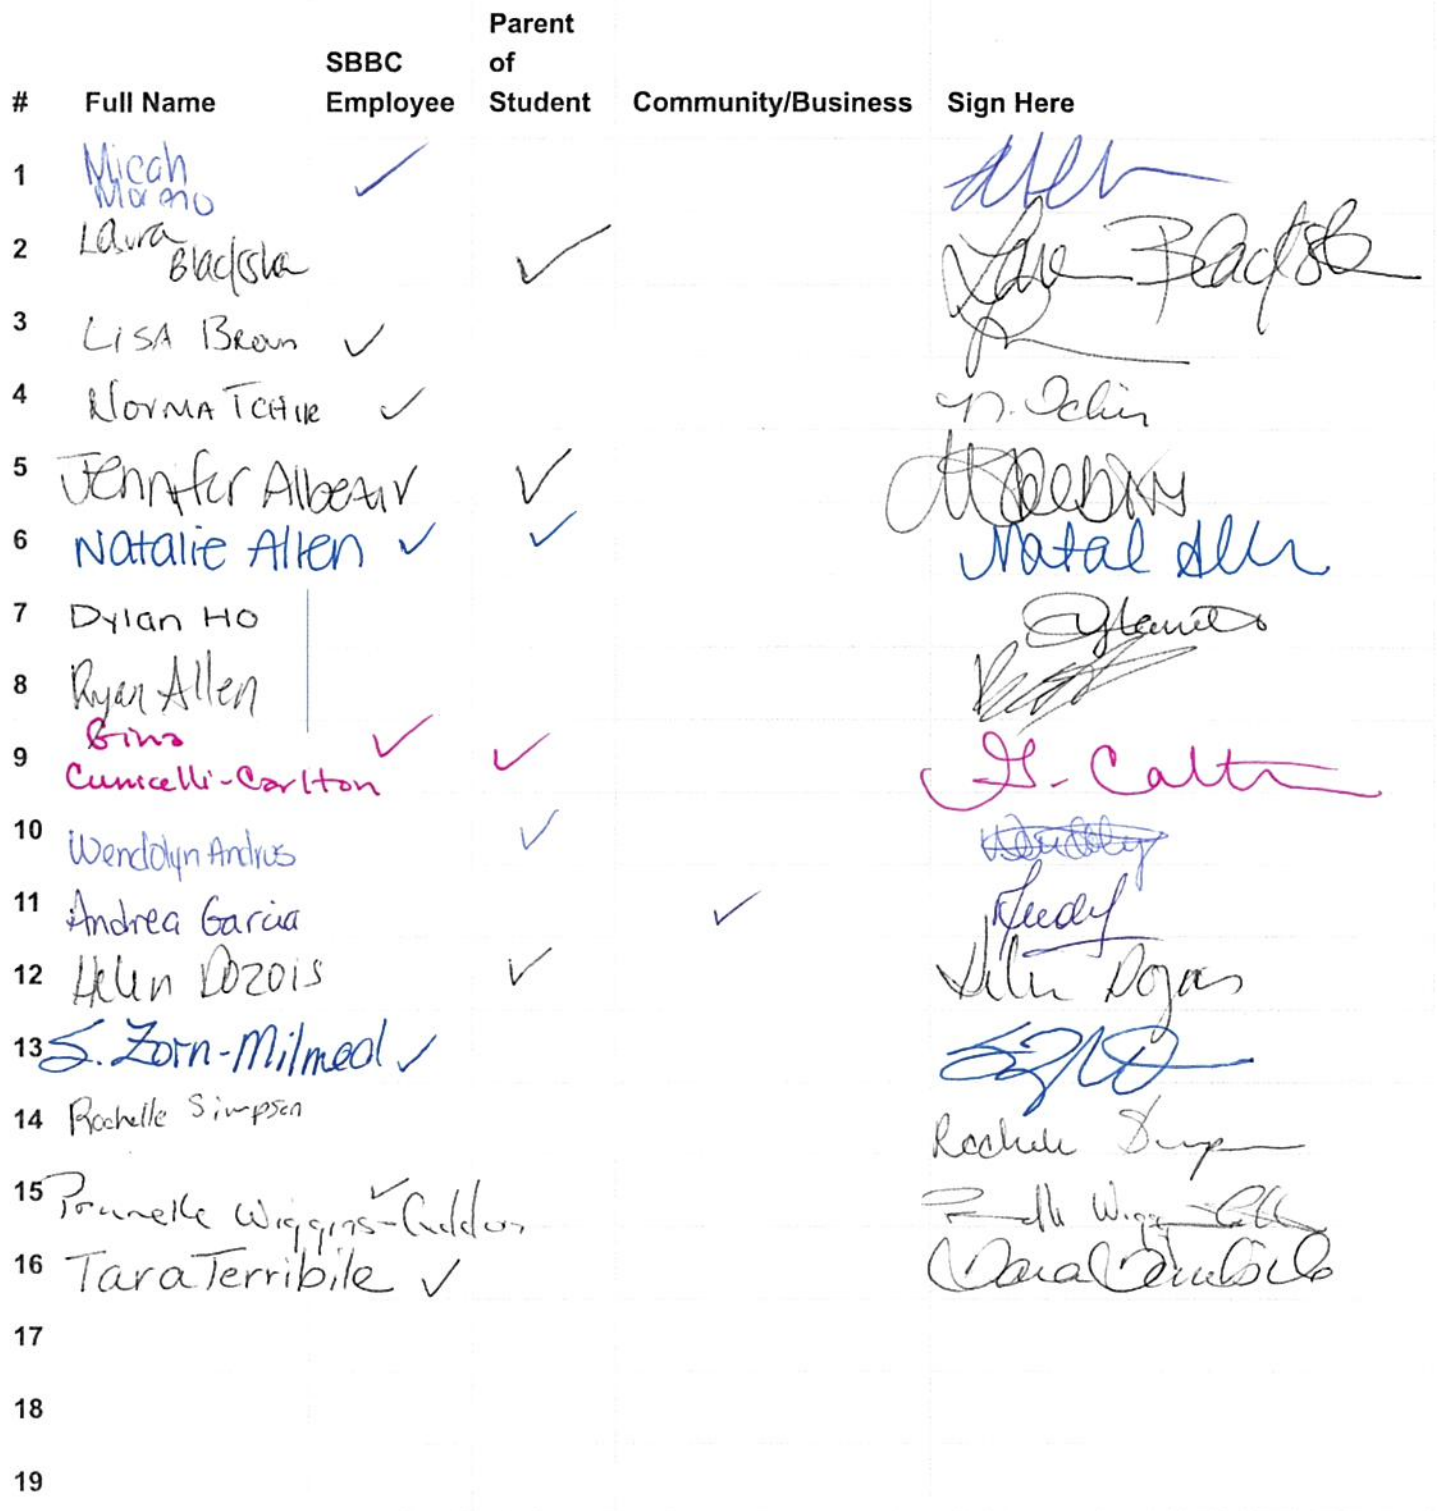 # Full Name SBBC Employee Parent of Student Community/Business Sign Here
1 Micah
✓
2 Laura ✓
3 LISA Brown ✓
4 NORMA TCHIR ✓ N. Tchir
5 Jennifer Albear ✓
6 Natalie Allen ✓ ✓ Natal Allen
7 Dylan HO
8 Ryan Allen
9 Gina ✓ ✓ G. Carlton
Cunicelli-Carlton
10 Wendolyn Andrus ✓
11 Andrea Garcia ✓
12 Helen Dozois ✓ Helen Dozois
13 S. Zorn-Milmed ✓
14 Rochelle Simpson Rochelle Simpson
15 Prunelle Wiggins- ✓
16 Tara Terribile ✓ Tara Terribile
17
18
19